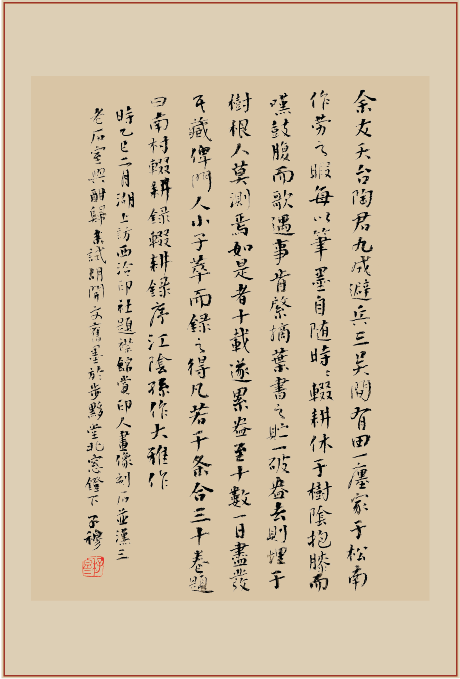 余友天台陶君九成避兵三吳間有田一廛家于松南
作勞之暇每以筆墨自随時時輟耕休于樹陰抱膝而
嘆鼓腹而歌遇事肯綮摘葉書之貯一破盎去則埋于
樹根人莫測焉如是者十載遂累盎至十數一日盡發
其藏俾門人小子萃而録之得凡若干条合三十卷題
曰南村輟耕録輟耕録序江陰孫作大雅作
時乙巳二月湖上訪西泠印社題襟館賞印人畫像刻石並漢三
老石室興酣歸來試胡開文舊墨於步黟堂北窓鐙下 子穆